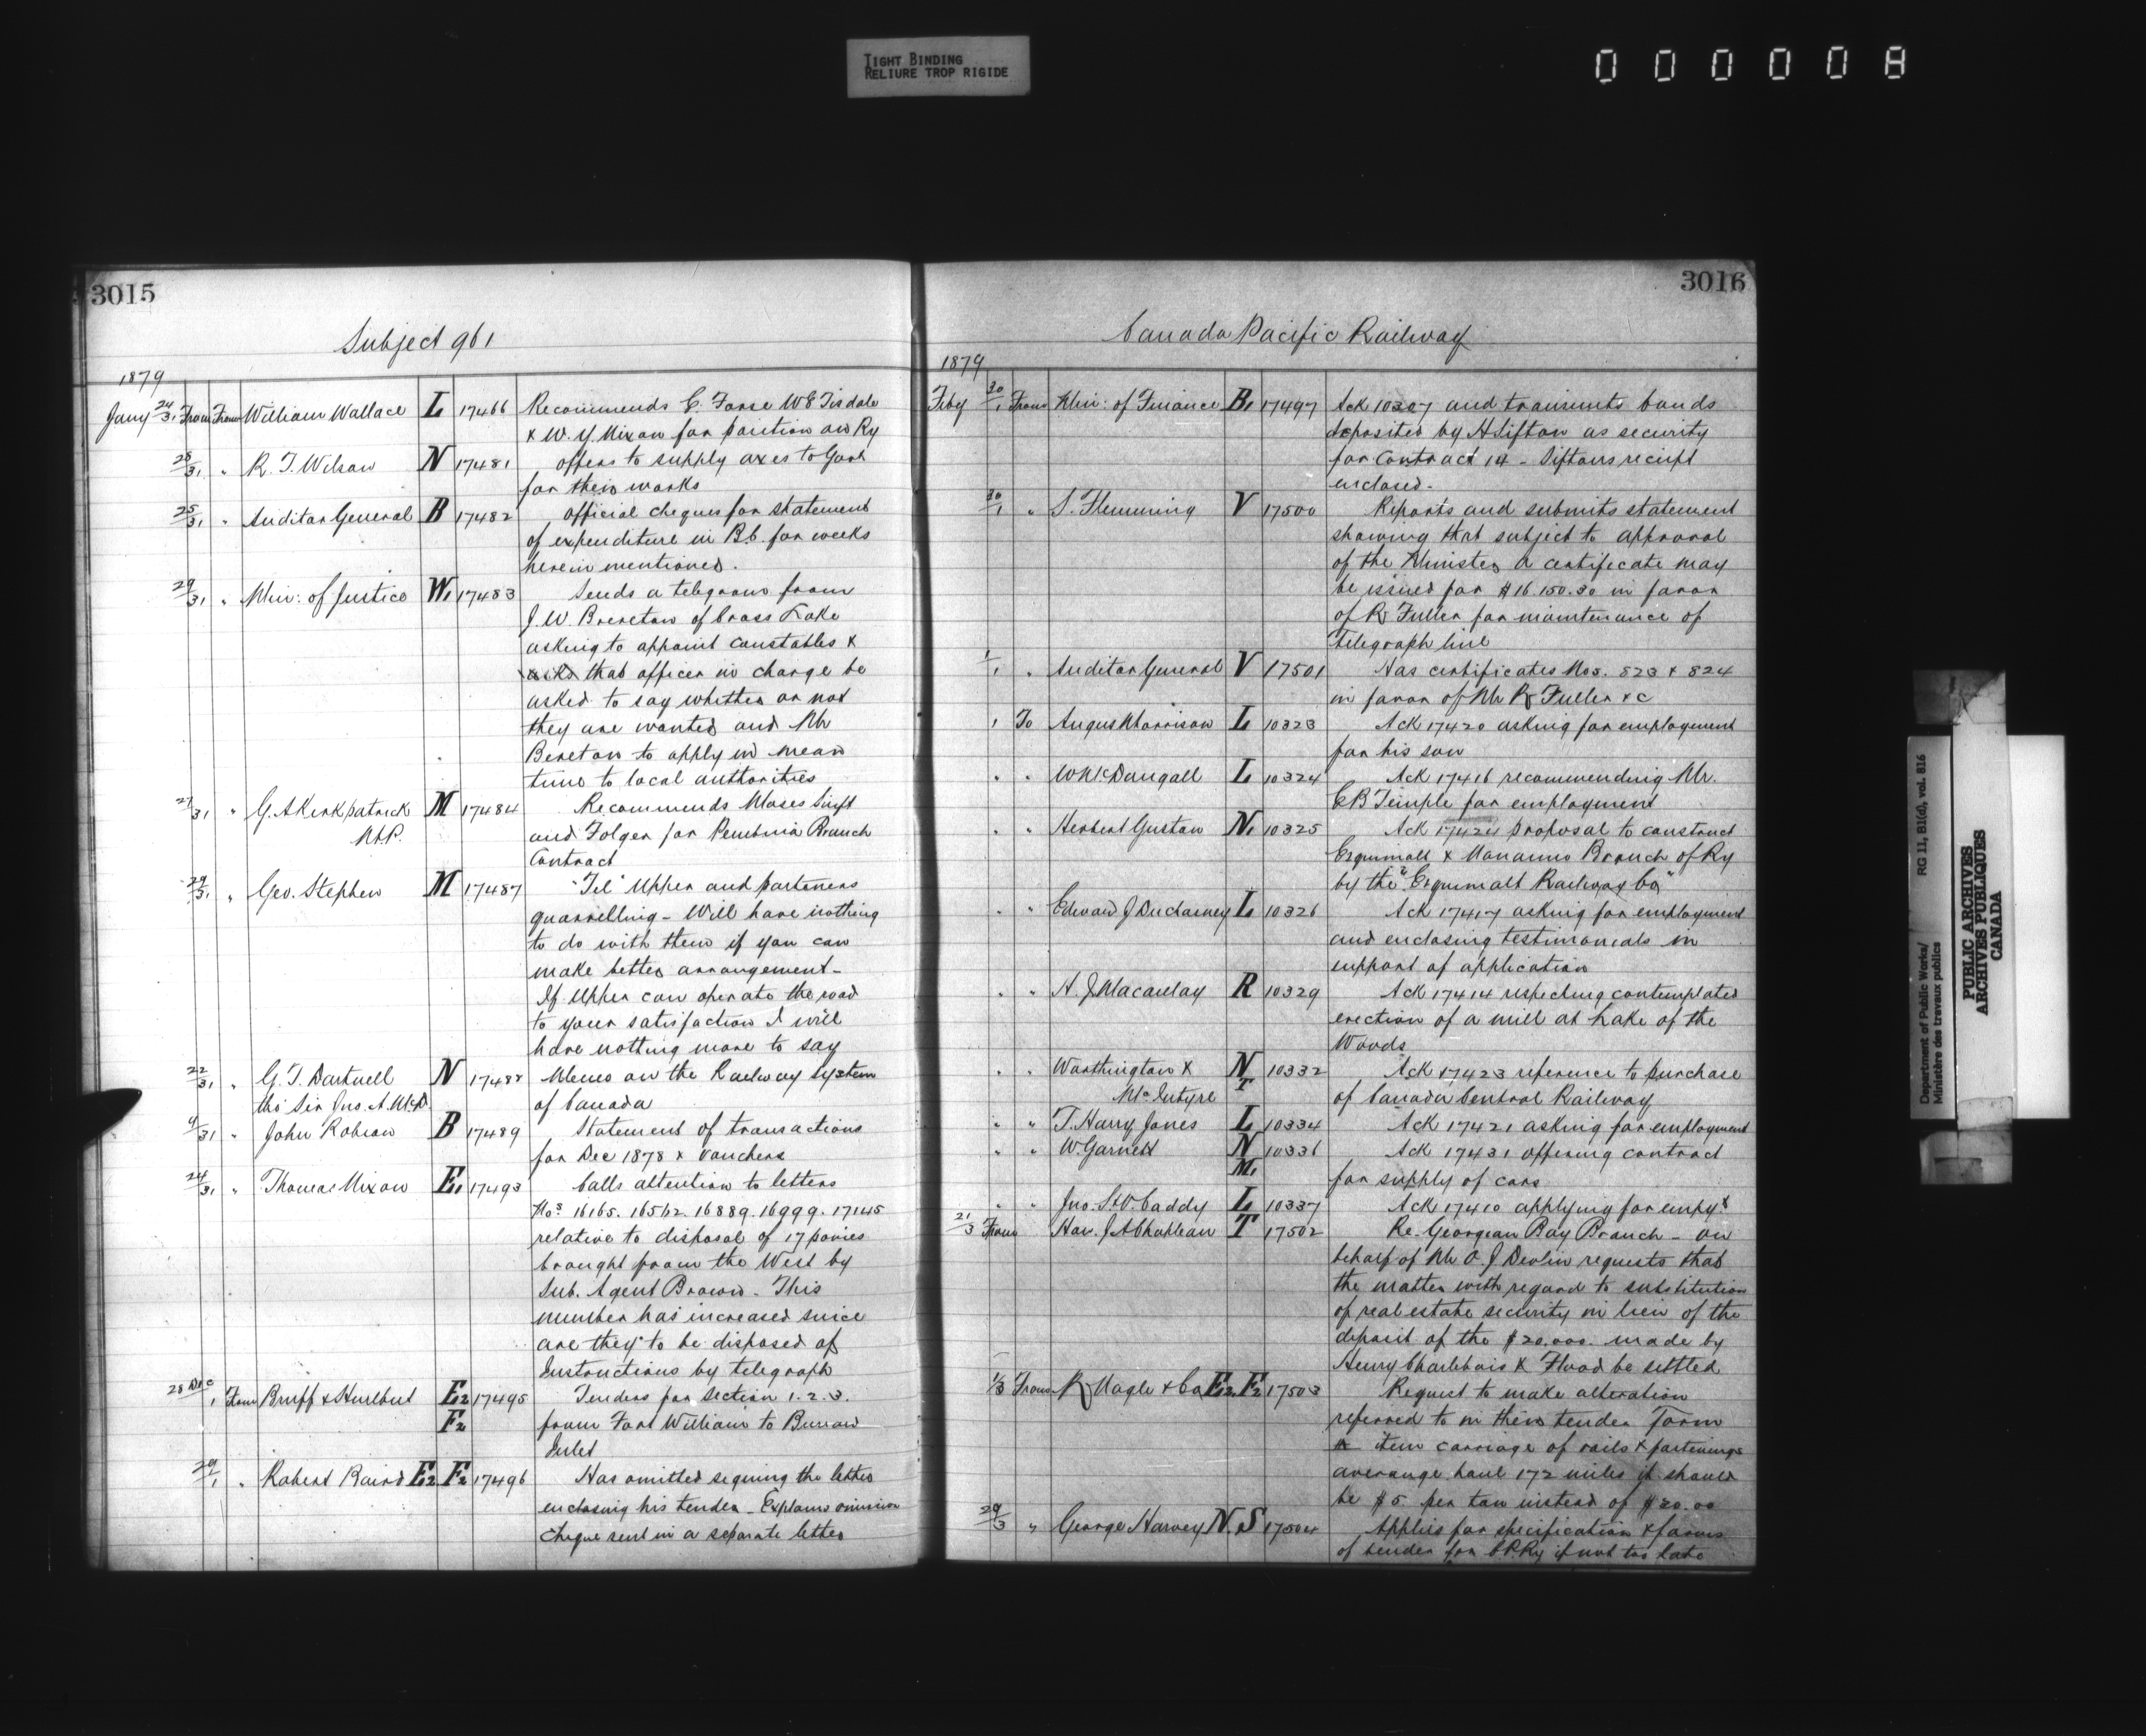 TIGHT BINDING
RELIURE TROP RIGIDE
000008
3015
Subject 961
1879
Jany 24/31 From From William Wallace L 17466 Recommends C. Forse W E Tisdale
& W. Y. Nixon for position on Ry
28/31 " R. T. Wilson N 17481 offers to supply axes to Govt
for their works
25/31 " Auditor General B 17482 official cheques for statement
of expenditure in B.C. for weeks
herein mentioned.
29/31 " Min: of Justice W1 17483 Sends a telegram from
J. W Brereton of Cross Lake
asking to appoint constables &
asks that officer in charge be
asked to say whether or not
they are wanted and Mr
Bereton to apply in mean
time to local authorities
27/31 " G. A Kirkpatrick M 17484 Recommends Moses Swift
M.P. and Folger for Pembina Branch
Contract
29/31 " Geo. Stephen M 17487 "Tel" Upper and parteners
quarrelling - Will have nothing
to do with them if you can
make better arrangement -
If Upper can operate the road
to your satisfaction I will
have nothing more to say
22/31 " G. T. Dartnell N 17488 Memo on the Railway system
tho' Sir Jno. A. McD. of Canada
9/31 " John Robson B 17489 Statement of transactions
for Dec 1878 & vouchers
24/31 " Thomas Nixon E1 17493 Calls attention to letters
Nos 16165. 16512. 16889. 16999. 17145
relative to disposal of 17 ponies
brought from the West by
Sub. Agent Brown. This
number has increased since
are they to be disposed of
Instructions by telegraph
28 Dec/1 From Bruff & Hurlbut E2 17495 Tenders for Section 1. 2. 3.
F2 from Fort William to Burrow
Inlet
29/1 " Robert Baird E2. F2 17496 Has omitted signing the letter
enclosing his tender - Explains omission
cheque sent in a separate letter
3016
Canada Pacific Railway
1879
Feby 30/1 From Min: of Finance B1 17497 Ack 10307 and transmits bonds
deposited by H Sifton as security
for Contract 14 - Siftons receipt
enclosed -
30/1 " S. Flemming V 17500 Reports and submits statement
showing that subject to approval
of the Minister a certificate may
be issued for $16.150.30 in favor
of R Fuller for maintenance of
Telegraph line
1/1 " Auditor General V 17501 Has certificates Nos. 823 & 824
in favor of Mr R Fuller &c
1 To Angus Morrison L 10323 Ack 17420 asking for employment
for his son
" " W McDougall L 10324 Ack 17416 recommending Mr.
C B Temple for employment
" " Herbert Guston N1 10325 Ack 17424 proposal to construct
Esquimalt & Nanaimo Branch of Ry
by the "Esquimalt Railway Co"
" " Edward J Duchesney L 10326 Ack 17417 asking for employment
and enclosing testimonials in
support of application
" " N. J Macaulay R 10329 Ack 17414 respecting contemplated
erection of a mill at Lake of the
Woods
" " Worthington & N 10332 Ack 17423 reference to purchase
McIntyre T of Canada Central Railway
" " T. Harry Jones L 10334 Ack 17421 asking for employment
" " W. Garnett N 10336 Ack 17431 offering contract
M1 for supply of cars
" " Jno. St V. Caddy L 10337 Ack 17410 applying for empyt
21/3 From Hon. J A Chapleau T 17502 Re Georgian Bay Branch - on
behalf of Mr O. J Devlin requests that
the matter with regard to substitution
of real estate security in lieu of the
deposit of the $20,000. made by
Henry Charlebois & Flood be settled
1/3 From R Nagle & Co E2. F2 17503 Request to make alteration
referred to in their tender Form
item carriage of rails & fastenings
averange haul 172 miles it should
be $5. per ton instead of $20.00
29/3 " George Harvey N. S 17504 Applies for specification & forms
of tender for C.P.Ry if not too late
Department of Public Works/
Ministère des travaux publics
RG 11, B1(d), vol. 816
PUBLIC ARCHIVES
ARCHIVES PUBLIQUES
CANADA